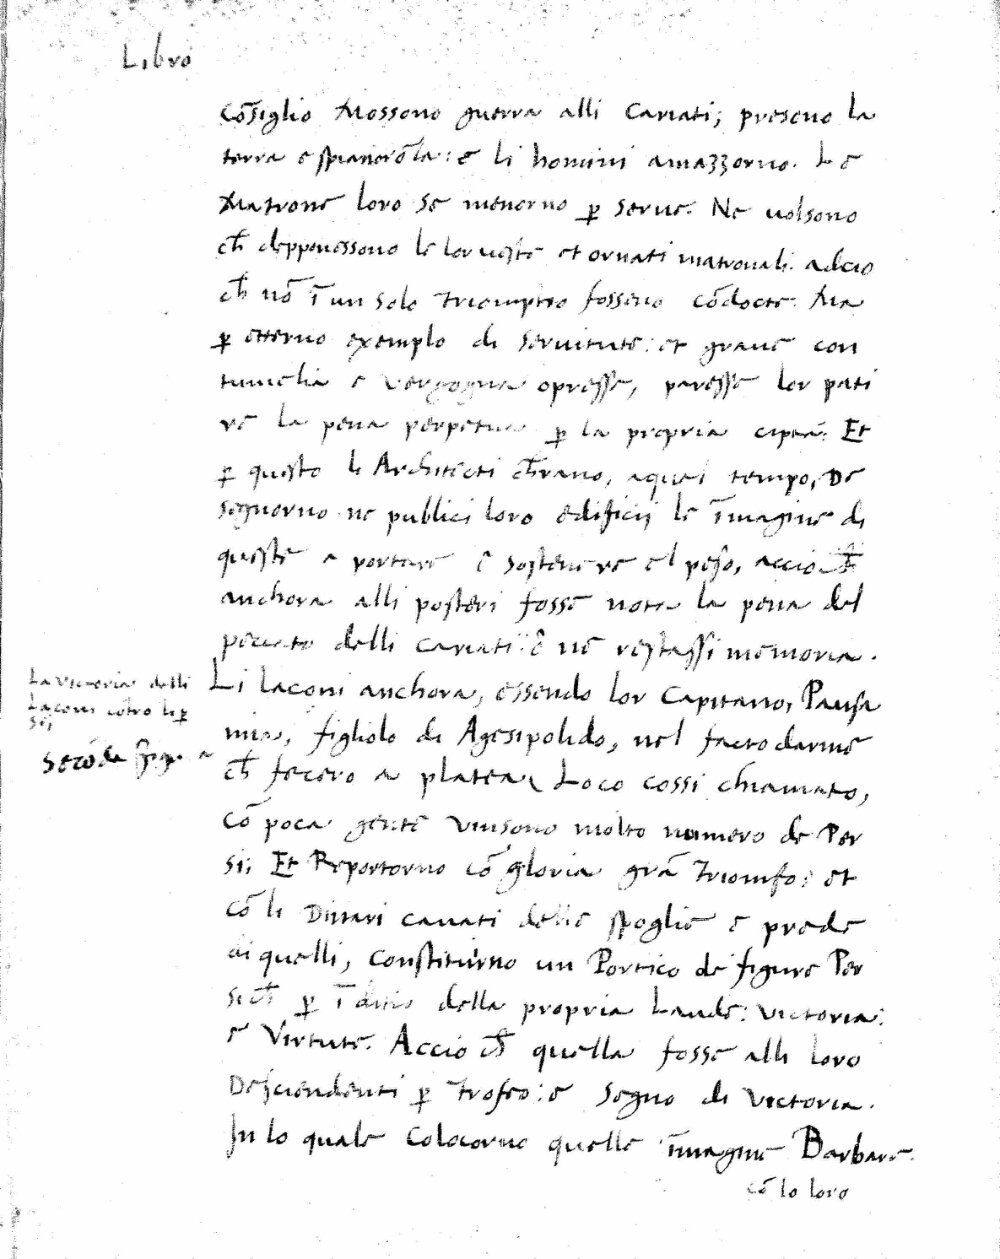 Libro
Cõsiglio Mossono guerra alli Cariati; presono la
terra e spianorõla: e li homini amazzorno. Le
Matrone loro se menorno ꝑ serue. Ne uolsono
ch̃ depponessono le lor ueste et ornati matronali. adcio
ch̃ nõ ĩ un solo triompho fosseno cõdocte: Ma
ꝑ etterno exemplo di seruitute: et graue con
tumelia e vergogna opresse, paresse lor pati
re la pena perpetua ꝑ la propria Et
ꝑ questo li Architecti ch̃ erano, a quel tempo, De
segnorno ne publici loro edificij le ĩmagine di
queste a portare e sostenere el peso, accio ch̃
anchora alli posteri fosse nota la pena del
peccato delli cariati: e ne restassi memoria.
La victoria delli
Laconi cõtro li ꝑ
si;
Secõda
Li laconi anchora, essendo lor Capitano, Pausa
nia, figliolo di Agesipolido, nel facto darme
ch̃ fecero a platea, Loco cossi chiamato,
cõ poca gente vinsono molto numero de Per
si; Et Reportorno cõ gloria grã Triomfo: et
cõ li Dinari cauati delle spoglie e prede
di quelli, constituirno un Portico de figure Per
sich̃ ꝑ ĩditio della propria Laude: victoria:
e Virtute. Accio ch̃ quella fosse alli loro
Desciendenti ꝑ trofeo: e segno di victoria.
In lo quale Colocorno quelle ĩmagine Barbare.
cõ lo loro